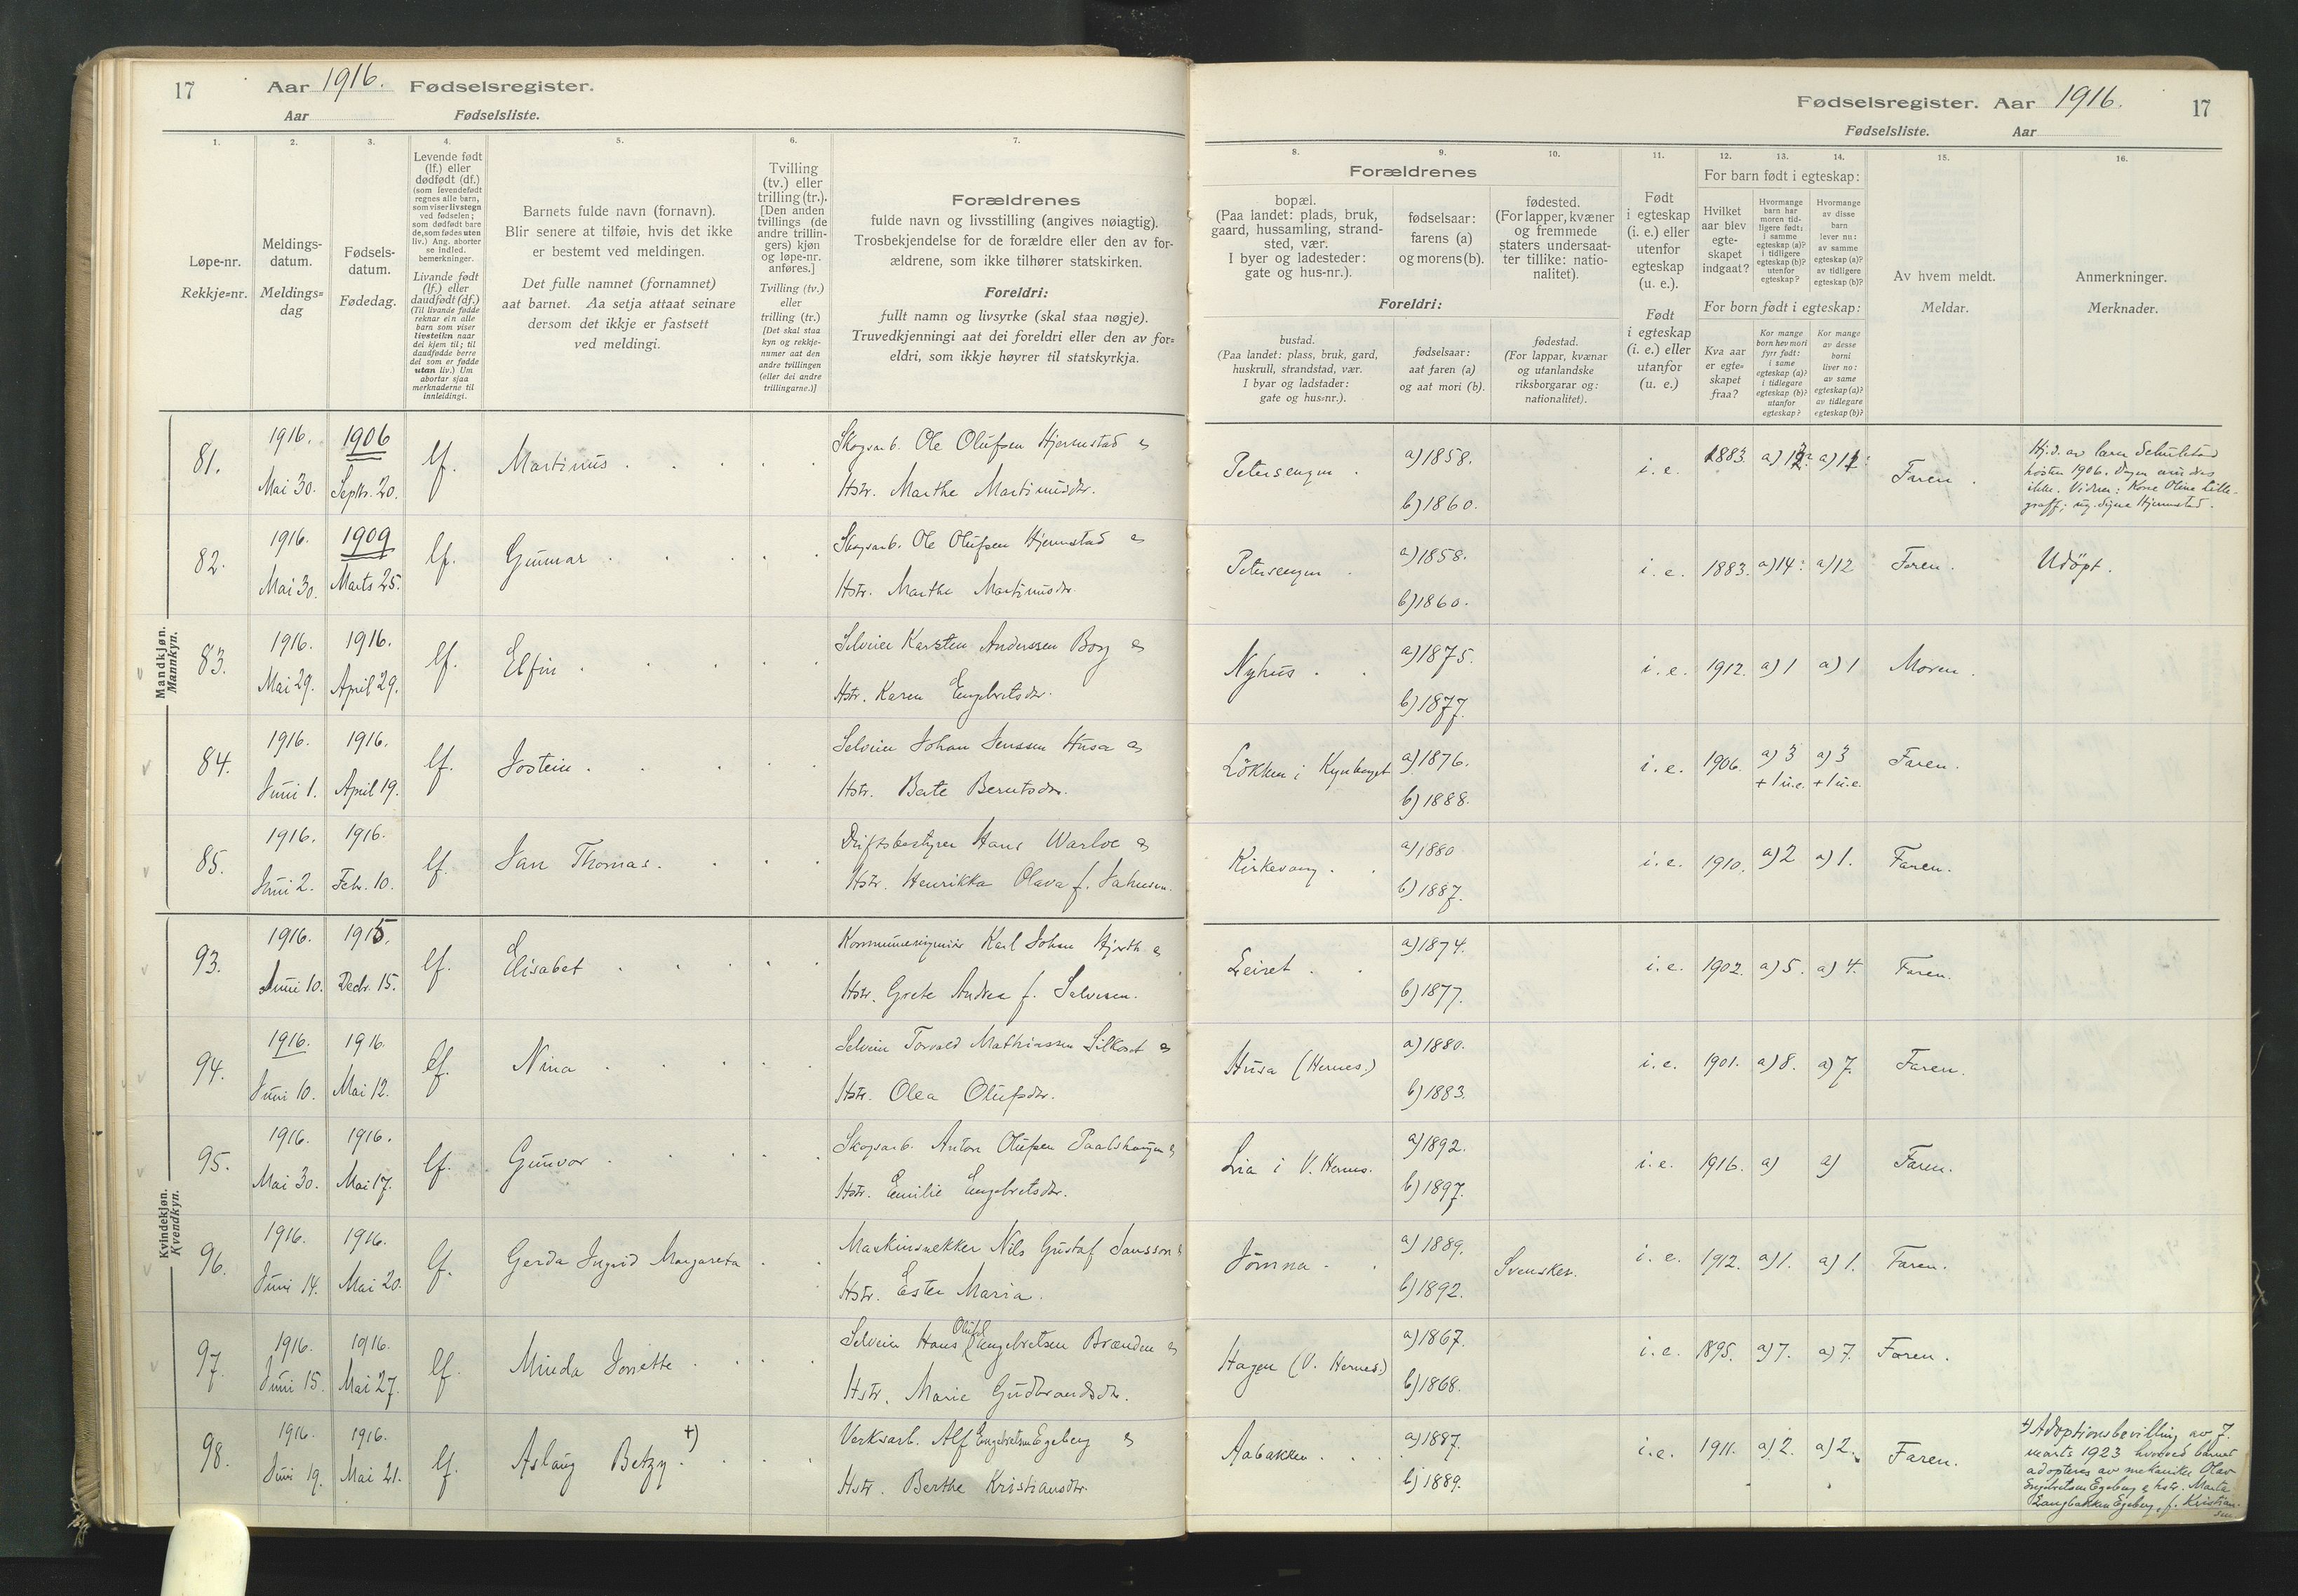 17 Aar 1916. Fødselsregister.
Aar Fødselsliste.
1. 2. 3. 4. 5. 6. 7.
Løpe-nr.
Rekkje=nr.
Meldings-
datum.
Meldings=
dag
Fødsels-
datum.
Fødedag.
Levende født
(lf.) eller
dødfødt (df.)
(som levendefødt
regnes alle barn,
som viser livstegn
ved fødselen;
som dødfødt bare
de, som fødes uten
liv.) Ang. aborter
se indled.
bemerkninger.
Livande født
(lf.) eller
daudfødt (df.)
(Til livande fødde
reknar ein alle
barn som viser
livsteikn naar
dei kjem til; til
daudfødde berre
dei som er fødde
utan liv.) Um
abortar sjaa
merknaderne til
innleidingi.
Barnets fulde navn (fornavn).
Blir senere at tilføie, hvis det ikke
er bestemt ved meldingen.
Det fulle namnet (fornamnet)
aat barnet. Aa setja attaat seinare
dersom det ikkje er fastsett
ved meldingi.
Tvilling
(tv.) eller
trilling (tr.).
[Den anden
tvillings (de
andre trillin-
gers) kjøn
og løpe-nr.
anføres.]
Tvilling (tv.)
eller
trilling (tr.)
[Det skal staa
kyn og rekkje-
numer aat den
andre tvillingen
(eller dei andre
trillingarne.)]
Forældrenes
fulde navn og livsstilling (angives nøiagtig).
Trosbekjendelse for de forældre eller den av for-
ældrene, som ikke tilhører statskirken.
Foreldri:
fullt namn og livsyrke (skal staa nøgje).
Truvedkjenningi aat dei foreldri eller den av for=
eldri, som ikkje høyrer til statskyrkja.
Mandkjøn.
Mannkyn.
81. 1916. 1906 lf. Martinus Skogsarb. Ole Olufsen Hjernstad &
Mai 30. Septr. 20. Hstr. Marthe Martinusdtr.
82. 1916. 1909 lf. Gunnar Skogsarb. Ole Olufsen Hjernstad &
Mai 30. Marts 25. Hstr. Marthe Martinusdtr.
83. 1916. 1916. lf. Elfin Selveier Karsten Anderssen Borg &
Mai 29. April 29. Hstr. Karen Engebretsdtr.
84. 1916. 1916. lf. Jostein Selveier Johan Jenssen Husa &
Juni 1. April 19. Hstr. Berte Berntsdtr.
85. 1916. 1916. lf. Jan Thomas. Driftsbestyrer Hans Warloe &
Juni 2. Febr. 10. Hstr. Henrikka Olava f. Jahnsen.
Kvindekjøn.
Kvendkyn.
93. 1916. 1915. lf. Elisabet Kommuneingeniør Karl Johan Hjorth &
Juni 10. Decbr. 15. Hstr. Grete Andrea f. Salvesen.
94. 1916. 1916. lf. Nina Selveier Torvald Mathiassen Silkoset &
Juni 10. Mai 12. Hstr. Olea Olufsdtr.
95. 1916. 1916. lf. Gunvor Skogsarb. Anton Olufsen Paalshaugen &
Mai 30. Mai 17. Hstr. Emilie Engebretsdtr.
96. 1916. 1916. lf. Gerda Ingrid Margareta Maskinsnekker Nils Gustaf Jansson &
Juni 14. Mai 20. Hstr. Ester Maria.
97. 1916. 1916. lf. Minda Jonette Selveier Hans Oluf Engebretsen Brænden &
Juni 15. Mai 27. Hstr. Marie Gudbrandsdtr.
98. 1916. 1916. lf. Aslaug Betzy. +) Verksarb. Alf Engebretsen Egeberg &
Juni 19. Mai 21. Hstr. Berthe Kristiansdtr.
Fødselsregister. Aar 1916. 17
Fødselsliste. Aar
8. 9. 10. 11. 12. 13. 14. 15. 16.
Forældrenes
bopæl.
(Paa landet: plads, bruk,
gaard, hussamling, strand-
sted, vær.
I byer og ladesteder:
gate og hus-nr.).
fødselsaar:
farens (a)
og morens (b).
fødested.
(For lapper, kvæner
og fremmede
staters undersaat-
ter tillike: natio-
nalitet).
Foreldri:
bustad.
(Paa landet: plass, bruk, gard,
huskrull, strandstad, vær.
I byar og ladstader:
gate og hus=nr.).
fødselsaar:
aat faren (a)
og aat mori (b).
fødestad.
(For lappar, kvænar
og utanlandske
riksborgarar og:
nationalitet).
Født
i egteskap
(i. e.) eller
utenfor
egteskap
(u. e.).
Født
i egteskap
(i. e.) eller
utanfor
(u. e.)
For barn født i egteskap:
Hvilket
aar blev
egte-
skapet
indgaat?
Hvormange
barn har
moren tid-
ligere født:
i samme
egteskap (a)?
i tidligere
egteskap (b)?
utenfor
egteskap?
Hvormange
av disse
barn
lever nu:
av samme
egteskap (a)?
av tidligere
egteskap (b)?
For born født i egteskap:
Kva aar
er egte=
skapet
fraa?
Kor mange
born hev mori
fyrr født:
i same
egteskap (a)?
i tidlegare
egteskap (b)?
utanfor
egteskap?
Kor mange
av desse
borni
liver no:
av same
egteskap (a)?
av tidlegare
egteskap (b)?
Av hvem meldt.
Meldar.
Anmerkninger.
Merknader.
Petersengen a) 1858. i. e. 1883. Faren
b) 1860.
Hj.d. av lærer
høsten 1906. Dagen mindes
ikke. Vidner: Kone Oline Lille-
graff; ug. Signe Hjernstad.
Petersengen a) 1858. i. e. 1883. a) 14. a) 12 Faren. Udöpt.
b) 1860.
Nyhus a) 1875. i. e. 1912. a) 1 a) 1 Moren.
b) 1877.
Lökken i Kynberget a) 1876. i. e. 1906. a) 3 a) 3 Faren.
b) 1888. + 1 u.e. + 1 u.e.
Kirkevang a) 1880 i. e. 1910. a) 2 a) 1. Faren.
b) 1887.
Leiret a) 1874. i. e. 1902. a) 5. a) 4. Faren.
b) 1877.
Husa (Hernes.) a) 1880. i. e. 1901. a) 8. a) 7. Faren.
b) 1883.
Lia i V. Hernes. a) 1892. i. e. 1916. a) a) Faren.
b) 1897.
Jömna a) 1889. Svensker. i. e. 1912. a) 1. a) 1. Faren.
b) 1892.
Hagen (V. Hernes.) a) 1867. i. e. 1895. a) 7. a) 7. Faren.
b) 1868.
Aabakken a) 1887. i. e. 1911. a) 2. a) 2. Faren.
b) 1889.
+) Adoptionsbevilling av 7.
marts 1923 hvorved barnet
adopteres av mekaniker Olav
Engebretsen Egeberg & hstr. Marta
Langbakken Egeberg, f. Kristian-
sen